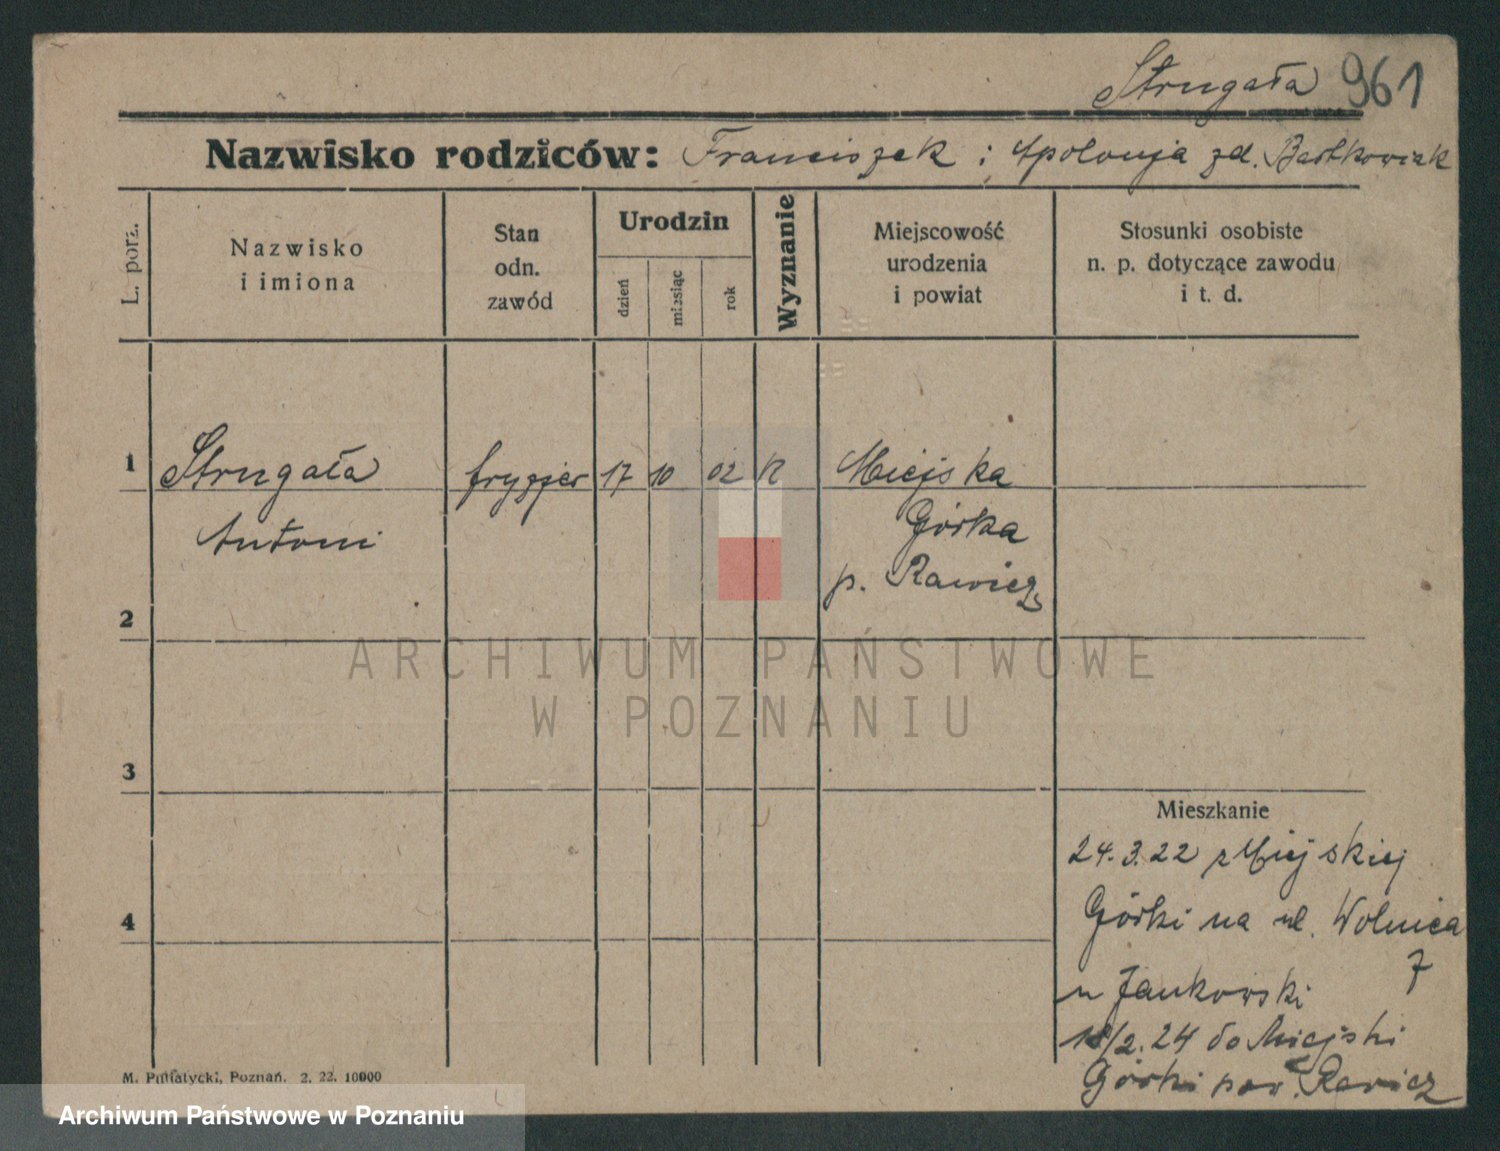 Strugała 961
Nazwisko rodziców: Franciszek i Apolonja zd. Bartkowiak
L. porz.
Nazwisko
i imiona
Stan
odn.
zawód
Urodzin
dzień
miesiąc
rok
Wyznanie
Miejscowość
urodzenia
i powiat
Stosunki osobiste
n. p. dotyczące zawodu
i t. d.
1 Strugała fryzjer 17 10 02 K Miejska
Antoni Górka
p. Rawicz
2
3
4
ARCHIWUM PAŃSTWOWE
W POZNANIU
Mieszkanie
24.3.22 z Miejskiej
Górki na ul. Wolnica
7
u Jankowski
18/2.24 do Miejski
Górki pow. Rawicz
M. Putiatycki, Poznań. 2. 22. 10000
Archiwum Państwowe w Poznaniu